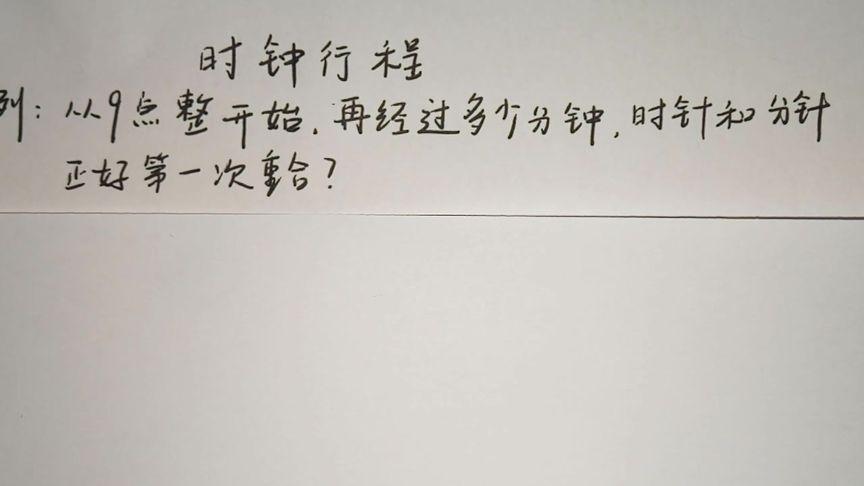 时钟行程
例：从9点整开始，再经过多少分钟，时针和分针
正好第一次重合？